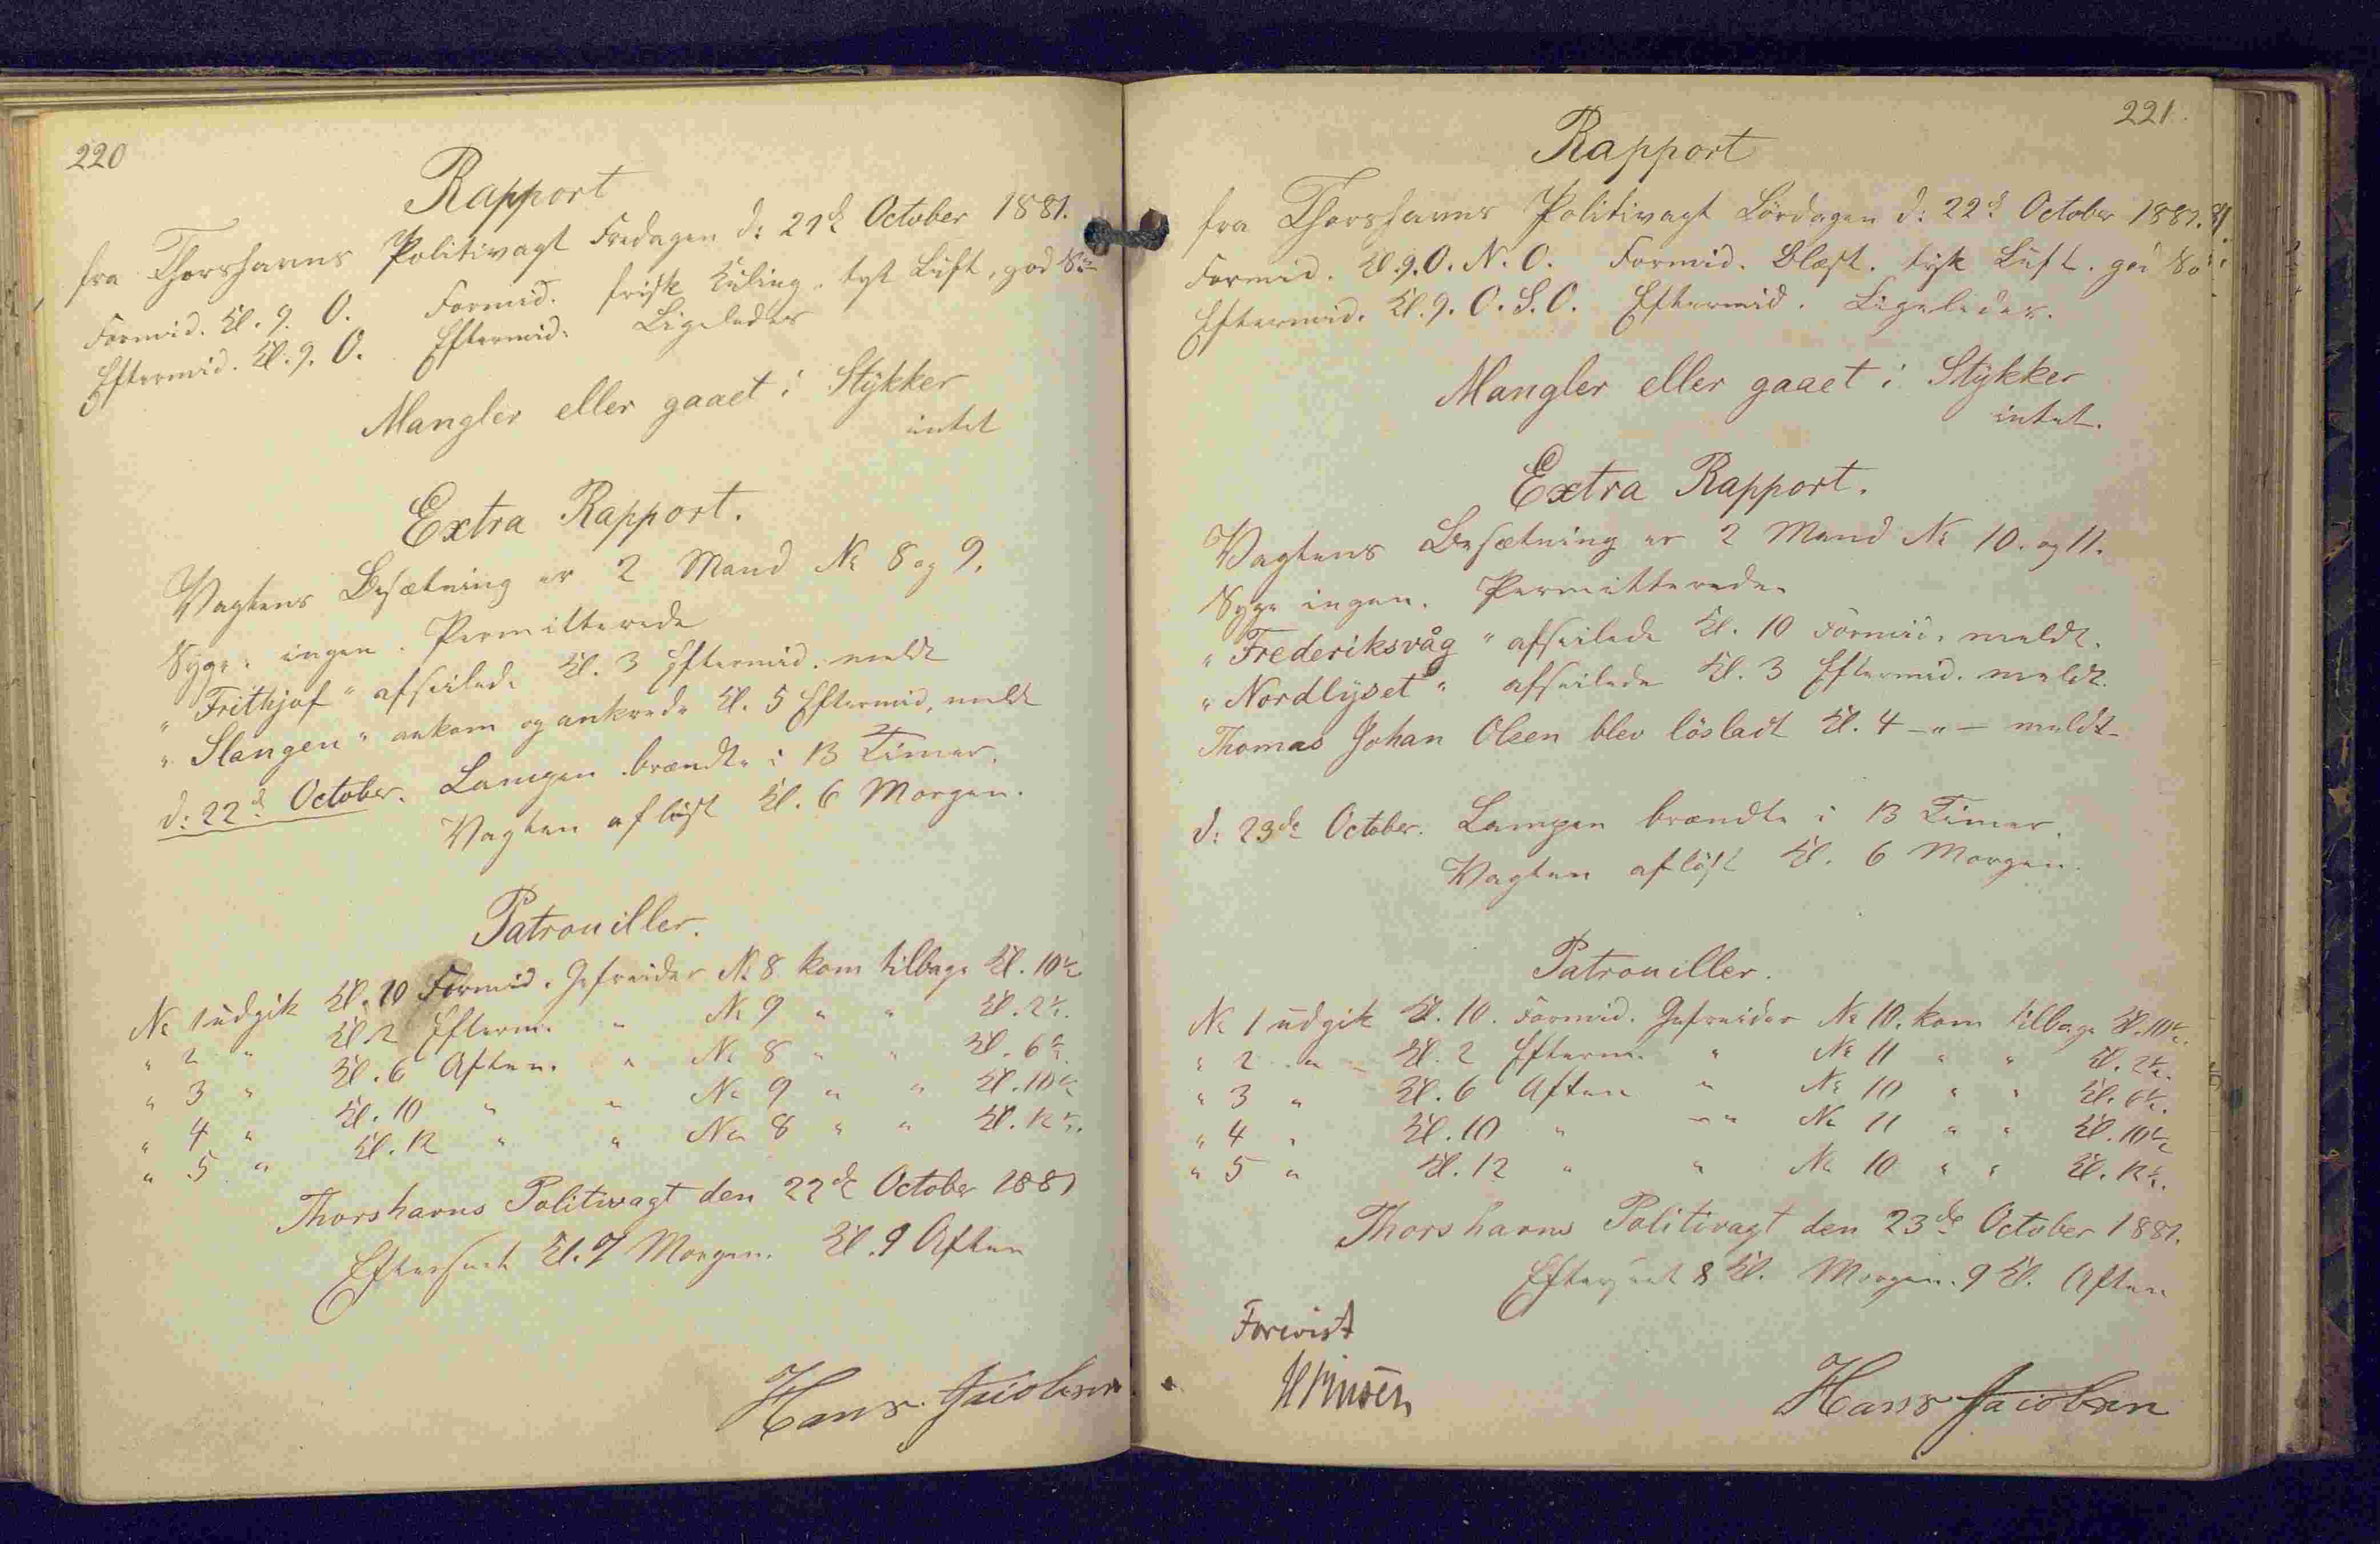 220
Rapport
fra Thorshavns Politivagt Fredagen d: 21de October 1881.
Formid. Kl. 9. O. Formid. frisk Kuling. tyk Luft, god
Eftermid. Kl. 9. O. Eftermid. Ligeledes
Mangler eller gaaet i Stykker
intet
Extra Rapport.
Vagtens Besætning er 2 Mand No 8 og 9.
Syge ingen. Permitterede
"Frithjof" afseilede Kl. 3 Eftermid. meldt
"Slangen" ankom og ankrede Kl. 5 Eftermid, meldt
d: 22de October. Lampen brændte i 13 Timer.
Vagten afløst Kl. 6 Morgen.
Patrouiller.
No 1 udgik Kl. 10 Formid. Gefreider No 8 kom tilbage Kl. 10½
" 2 " Kl 2 Efterm. " No 9 " " Kl. 2½.
" 3 " Kl. 6 Aften. " No 8 " " Kl. 6½.
" 4 " Kl. 10 " " No 9 " " Kl. 10½
" 5 " Kl. 12 " " No 8 " " Kl. 12½.
Thorshavns Politivagt den 22de October 1881
Efterseet Kl. 7 Morgen. Kl. 9 Aften
Hans Jacobsen
221.
Rapport
fra Thorshavns Politivagt Lördagen d: 22de October 1881.
Formid. Kl. 9. O. N. O. Formid. Blæst. tyk Luft. god
Eftermid. Kl. 9. O. S. O. Eftermid. Ligeledes.
Mangler eller gaaet i Stykker
intet.
Extra Rapport.
Vagtens Besætning er 2 Mand No 10. og 11.
Syge ingen. Permitterede.
"Frederiksvåg" afseilede Kl. 10 Formid. meldt.
"Nordlyset" afseilede Kl. 3 Eftermid. meldt.
Thomas Johan Olsen blev lösladt Kl. 4 — " — meldt
d: 23de October. Lampen brændte i 13 Timer.
Vagten aflöst Kl. 6 Morgen.
Patrouiller.
No 1 udgik Kl. 10. Formid. Gefreider No 10. kom tilbage Kl. 10½.
" 2 " Kl. 2 Efterm. " No 11 " " Kl. 2½.
" 3 " Kl. 6 Aften " No 10 " " Kl. 6½.
" 4 " Kl. 10 " " No 11 " " Kl. 10½
" 5 " Kl. 12 " " No 10 " " Kl. 12½.
Thorshavns Politivagt den 23de October 1881.
Efterseet 8 Kl. Morgen. 9 Kl. Aften
Forevist
Hans Jacobsen